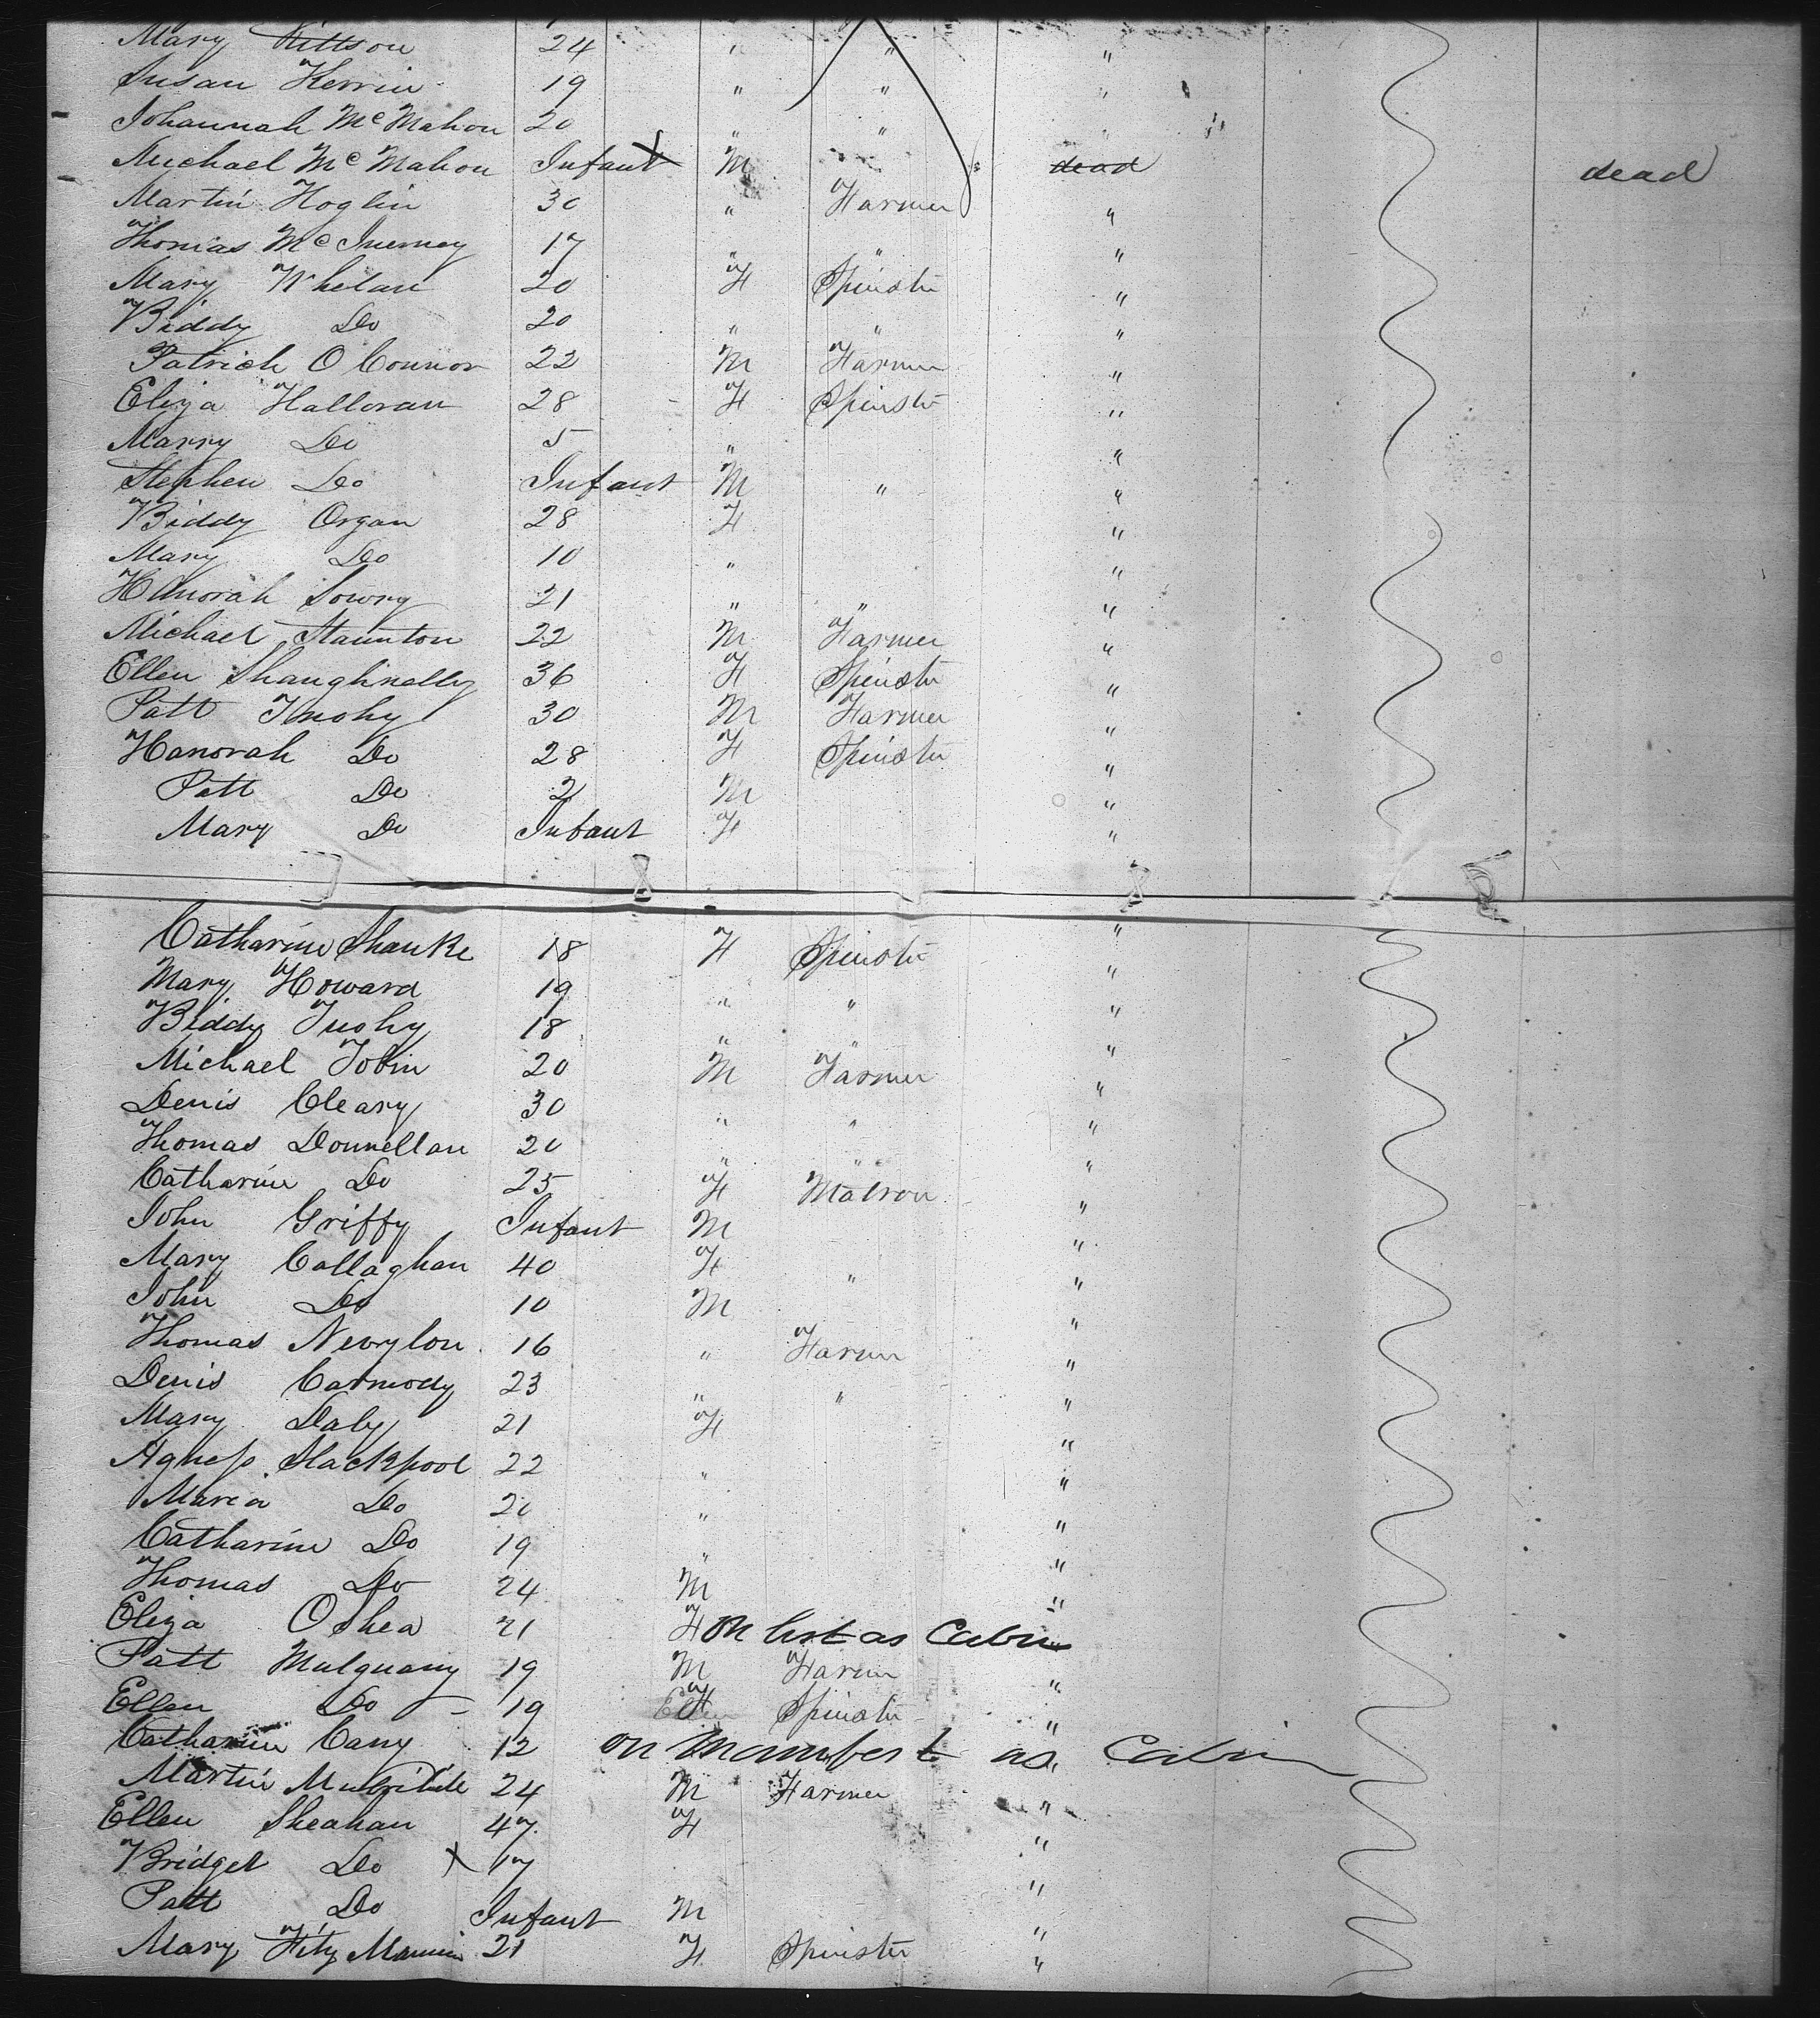 Mary Kittson 24 " " "
Susan Kerrin 19 " " "
Johannah McMahon 20 " " " "
Michael McMahon Infant M " dead dead
Martin Hoglin 30 " Farmer "
Thomas McInerney 17 " " "
Mary Whelan 20 F Spinster "
Biddy Do 20 " " "
Patrick O Connor 22 M Farmer "
Eliza Halloran 28 F Spinster "
Marry Do 5 " "
Stephen Do Infant M " "
Biddy Organ 28 F "
Mary Do 10 " "
Hanorah Lowry 21 " " "
Michael Staunton 22 M Farmer "
Ellen Shaughnelly 36 F Spinster "
Patt 30 M Farmer "
Hanorah Do 28 F Spinster "
Patt Do 2 M "
Mary Do Infant F "
Catharine Shanke 18 F Spinster "
Mary Howard 19 " " "
Biddy Tuohy 18 " " "
Michael Tobin 20 M Farmer "
Denis Cleary 30 " " "
Thomas Donnellan 20 " " "
Catharine Do 25 F Matron "
John Griffy Infant M "
Mary Callaghan 40 F " "
John Do 10 M "
Thomas Newylon 16 " Farmer "
Denis Carmody 23 " " "
Mary Daly 21 F "
Agness Slackpool 22 " "
Maria Do 20 " "
Catharine Do 19 " "
Thomas Do 24 M "
Eliza O Shea 21 F on list as Cabin
Patt Mulquany 19 M Farmer "
Ellen Do 19 F Spinster "
Catharine Cany 12 on Manifest as Cabin
Martin 24 M Farmer "
Ellen Sheahan 47 F "
Bridget Do 17 "
Patt Do Infant M "
Mary Fitz 21 F Spinster "